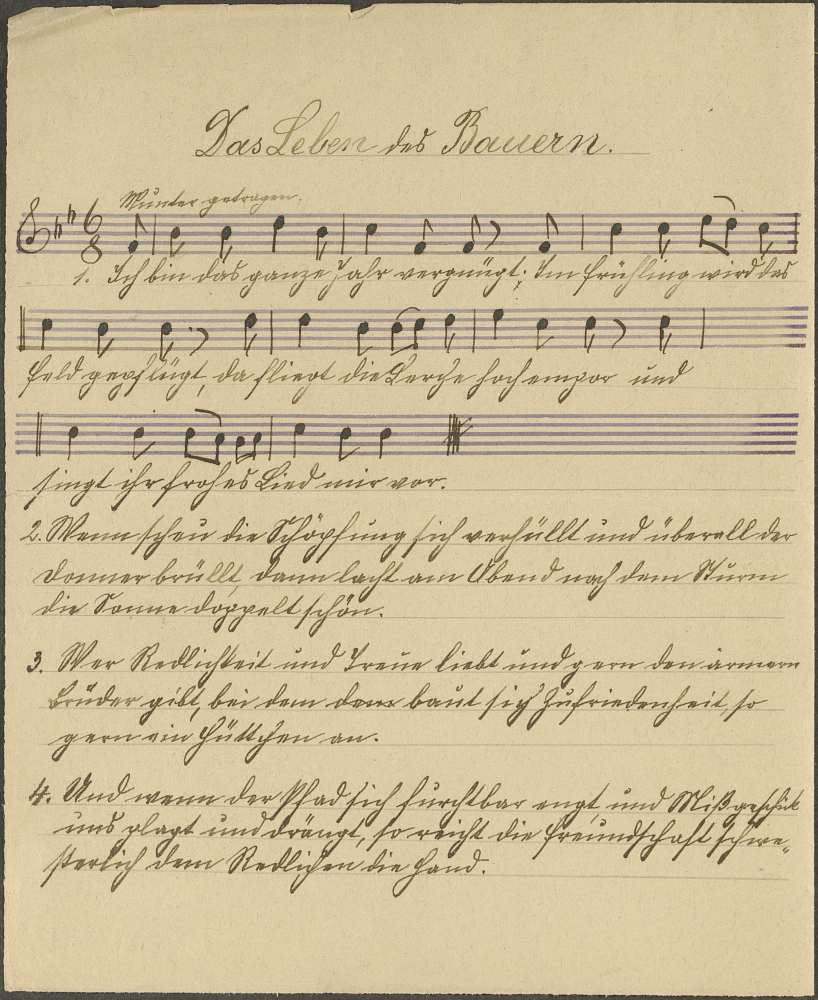 Das Leben des Bauern.
Munter getragen.
6
8
1. Ich bin das ganze Jahr vergnügt; Im Frühling wird das
Feld gepflügt, da fliegt die Lerche hoch empor und
singt ihr frohes Lied mir vor.
2. Wenn scheu die Schöpfung sich verhüllt und überall der
Donner brüllt, dann lacht am Abend nach dem Sturm
die Sonne doppelt schön.
3. Wer Redlichkeit und Treue liebt und gern den ärmern
Brüder gibt, bei dem baut sich Zufriedenheit, so
gern ein Hüttchen an.
4. Und wenn der Pfad sich furchtbar engt, und Mißgeschick
uns plagt und drängt, so reicht die Freundschaft schwe-
sterlich dem Redlichen die Hand.